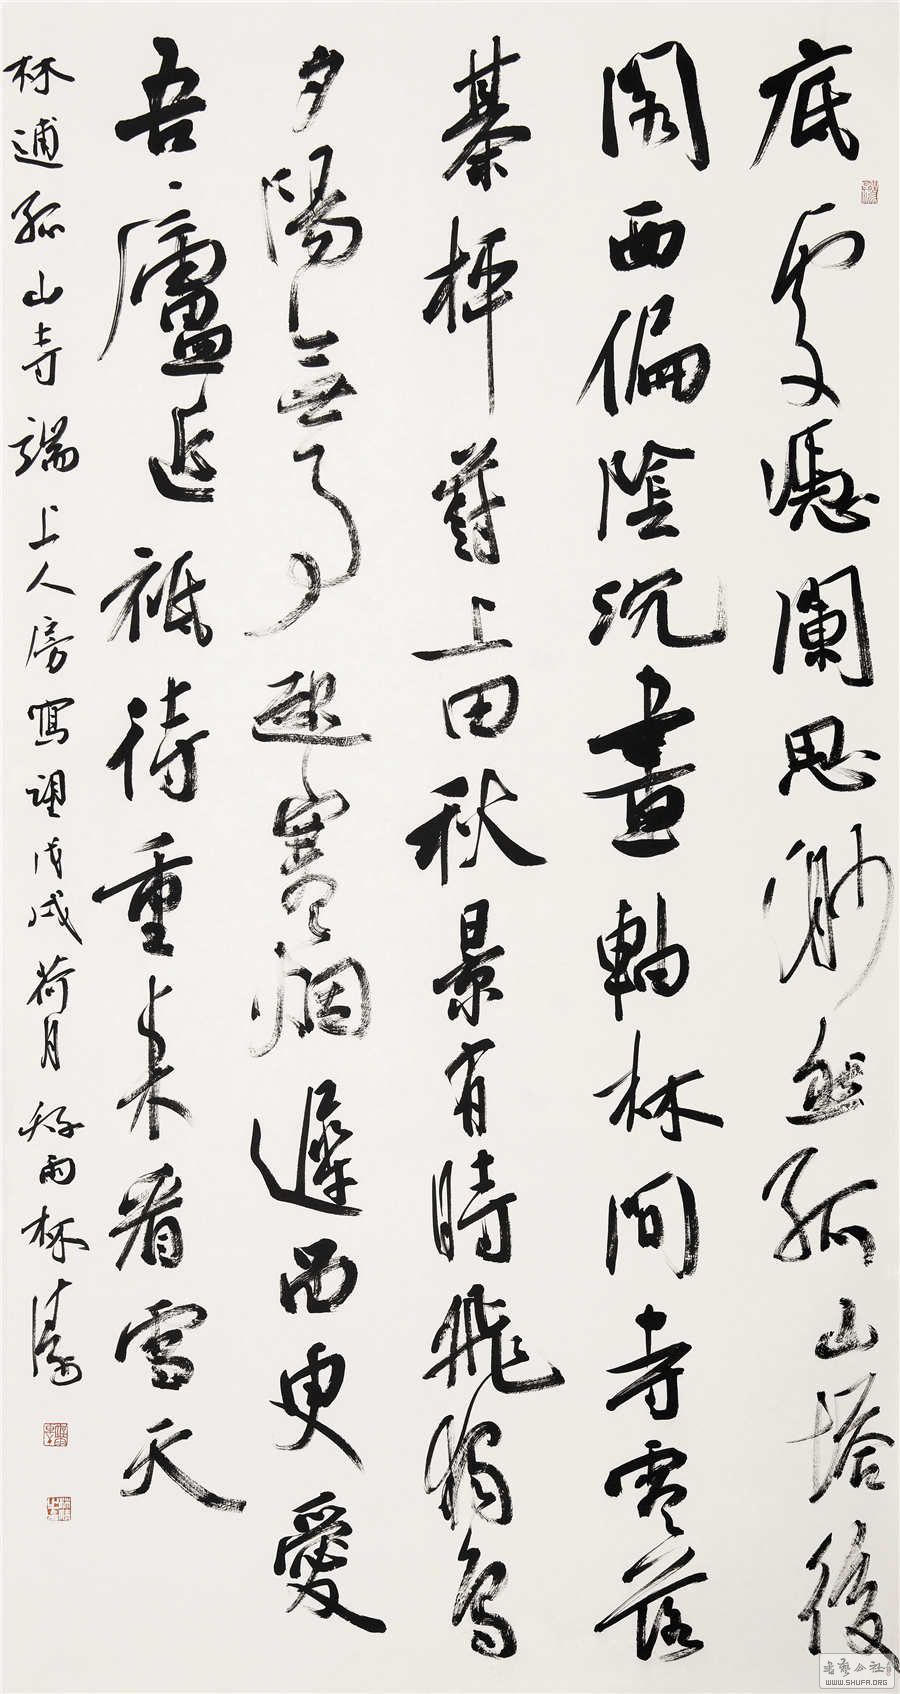 底處憑闌思渺然孤山塔後
閣西偏陰沉畫軸林間寺零落
棊枰葑上田秋景有時飛獨鳥
夕陽無事起寒烟遲留更愛
吾廬近祗待重來看雪天
林逋孤山寺端上人房寫望戊戌荷月雨林濤
書藝公社
WWW.SHUFA.ORG